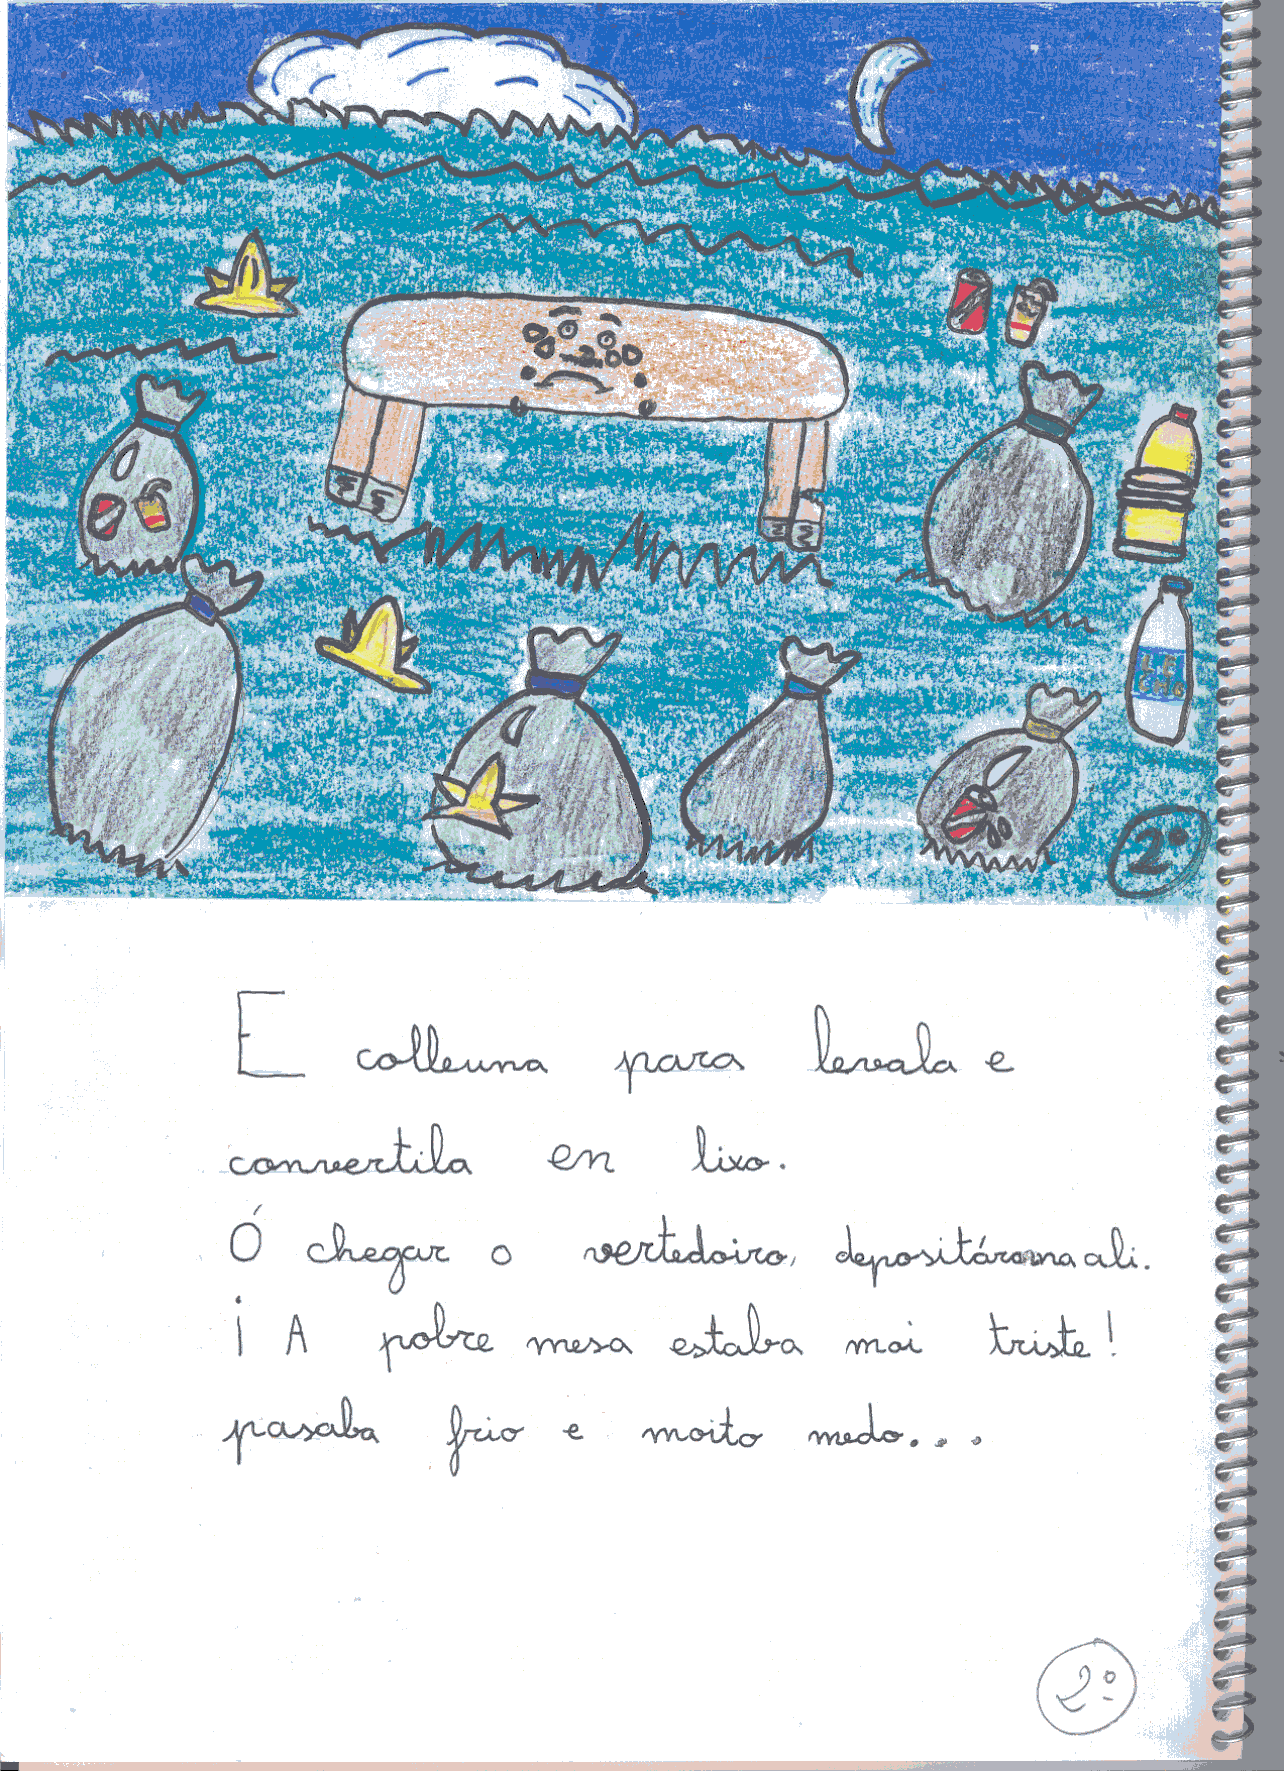 2º
E colleuna para levala e
convertila en lixo.
Ó chegar o vertedoiro, depositárona ali.
¡A pobre mesa estaba moi triste!
pasaba frio e moito medo...
2º